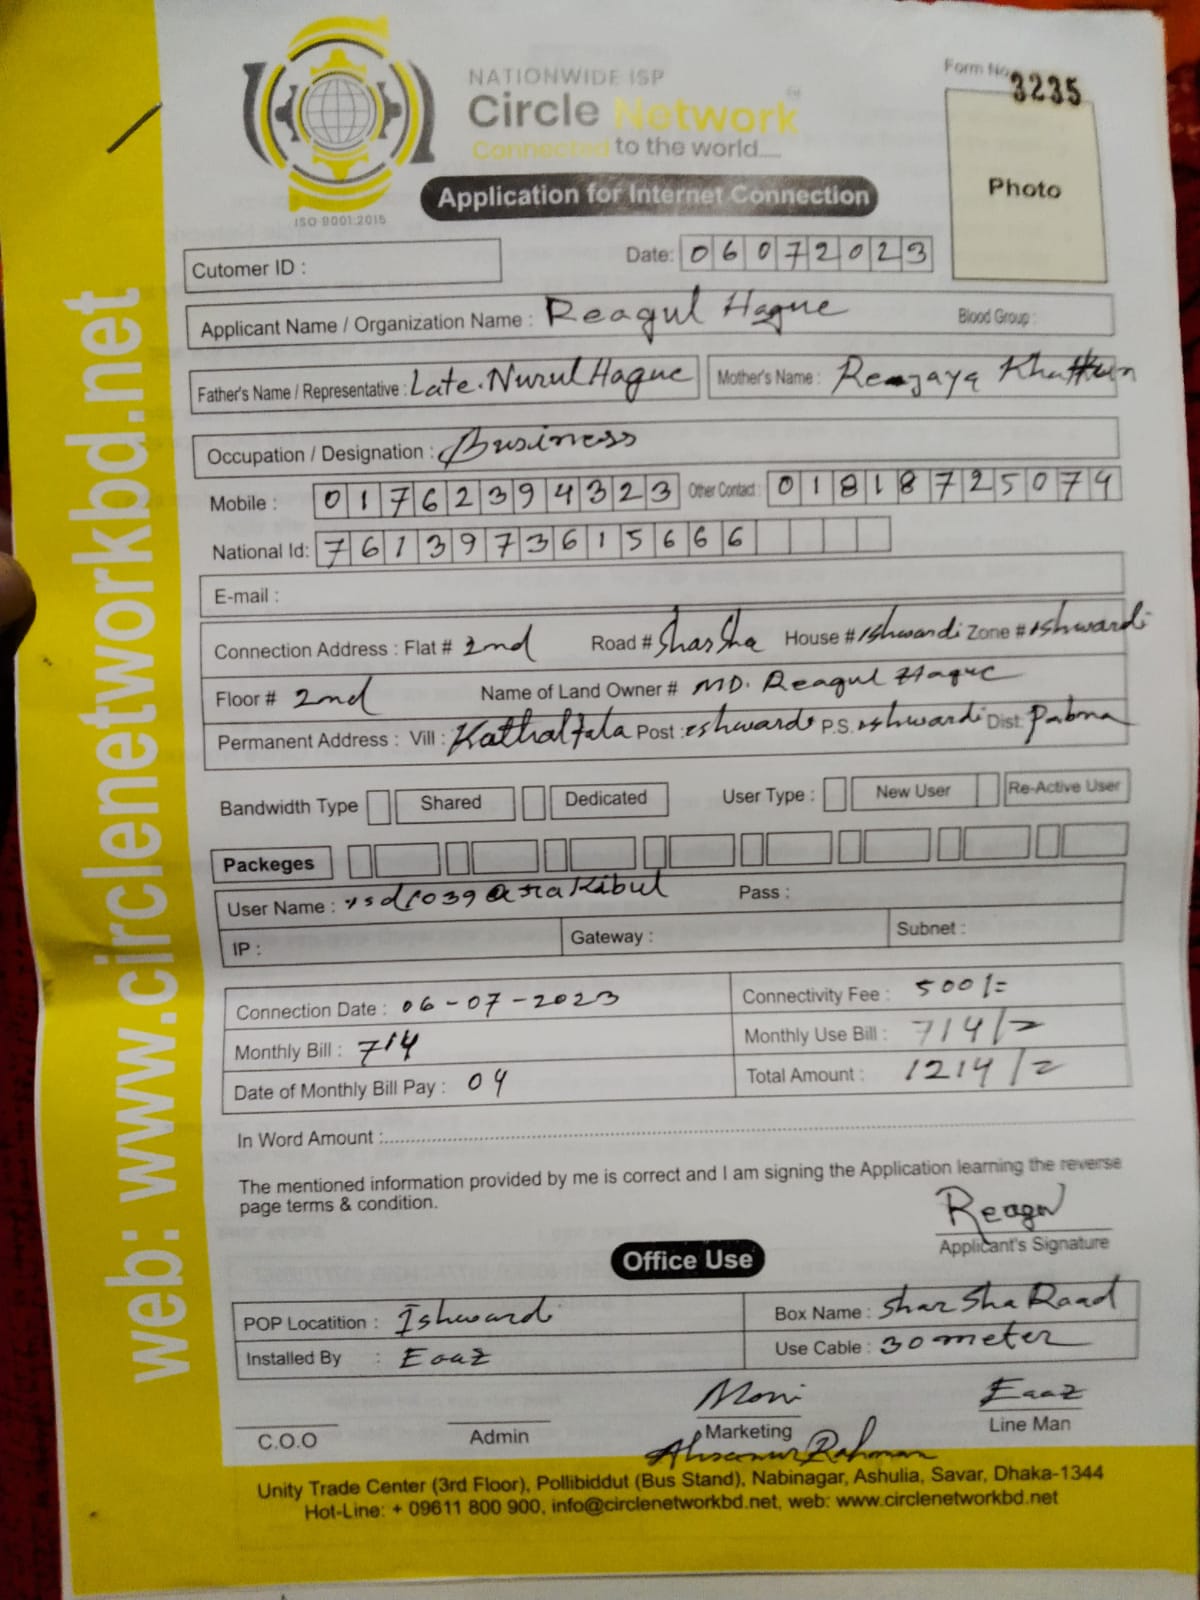 NATIONWIDE ISP
Circle Network
Connected to the world....
ISO 9001:2015
Form No. 3235
Photo
Application for Internet Connection
Cutomer ID :
Date: 06072023
Applicant Name / Organization Name : Reagul Haque Blood Group :
Father's Name / Representative : Late. Nurul Haque Mother's Name : Khattun
Occupation / Designation : Business
Mobile : 01762394323 Other Contact : 01818725074
National Id: 7613973615666
E-mail :
Connection Address : Flat # 2nd Road # Shar Sha House # Ishwardi Zone # Ishwardi
Floor # 2nd Name of Land Owner # MD. Reagul Haque
Permanent Address : Vill : Kathaltala Post : eshwardi P.S. eshwardi Dist: Pabna
Bandwidth Type Shared Dedicated User Type : New User Re-Active User
Packeges
User Name : Pass :
IP : Gateway : Subnet :
Connection Date : 06-07-2023 Connectivity Fee : 500/=
Monthly Bill : 714 Monthly Use Bill : 714/=
Date of Monthly Bill Pay : 04 Total Amount : 1214/=
In Word Amount :
The mentioned information provided by me is correct and I am signing the Application learning the reverse
page terms & condition.
Reagul
Applicant's Signature
Office Use
POP Locatition : Ishwardi Box Name : Shar Sha Road
Installed By : Eaaz Use Cable : 30 meter
Moni Eaaz
C.O.O Admin Marketing Line Man
Ahsanur Rahman
Unity Trade Center (3rd Floor), Pollibiddut (Bus Stand), Nabinagar, Ashulia, Savar, Dhaka-1344
Hot-Line: + 09611 800 900, info@circlenetworkbd.net, web: www.circlenetworkbd.net
web: www.circlenetworkbd.net